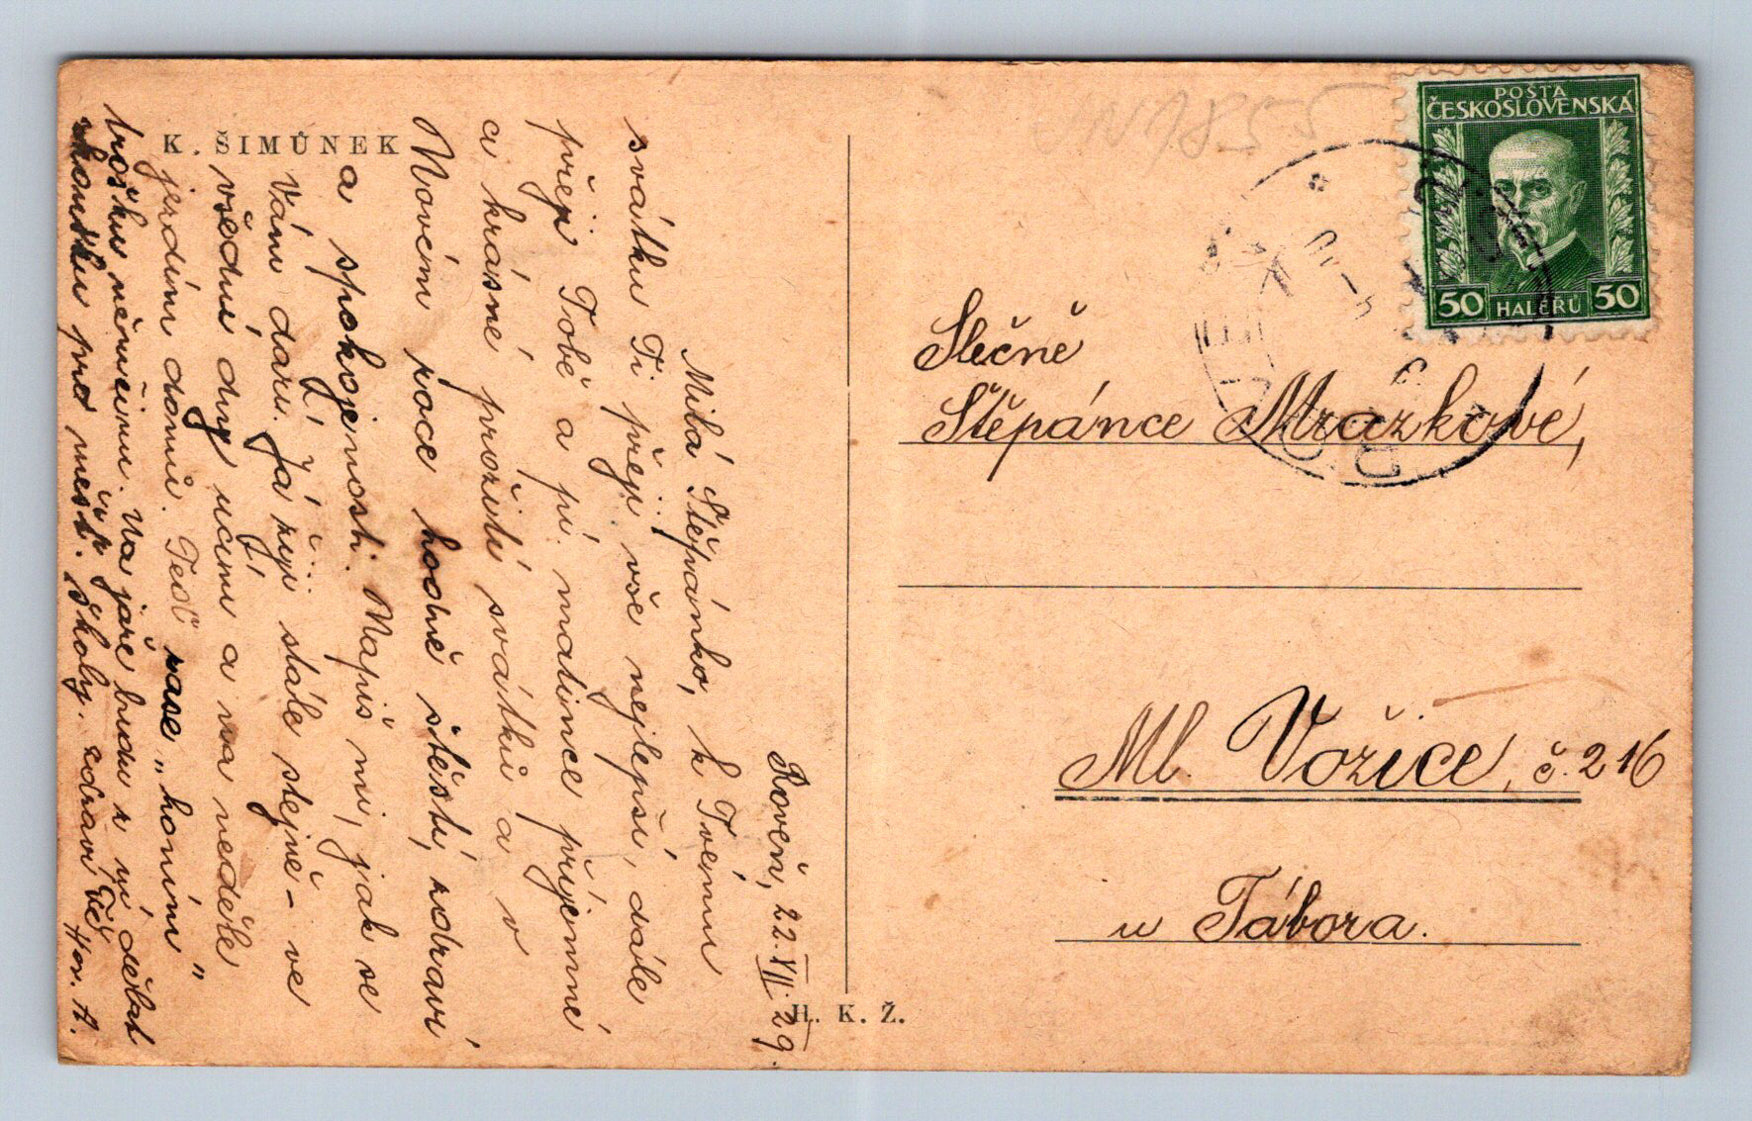 K. ŠIMŮNEK
Roveň, 22. XII. 29.
Milá Štěpánko, k Tvému
svátku Ti přeji vše nejlepší, dále
přeji Tobě a pí. matince příjemné
a krásné prožití svátků a v
Novém roce hodně štěstí, zdraví
a spokojenosti. Napiš mi, jak se
Vám daří. Já žiji stále stejně - ve
všední dny učím a na neděle
jezdím domů. Teď zase "honím"
trošku němčinu. Na jaře budu z ní dělat
zkoušku pro měšť. školy. zdraví Tě
H. K. Ž.
POŠTA
ČESKOSLOVENSKÁ
50 HALÉRŮ 50
Slečně
Štěpánce Mrázkové,
Ml. Vožice, č. 216
u Tábora.